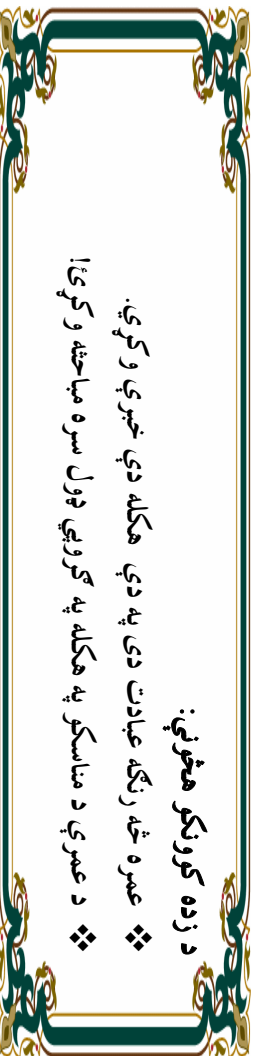 د زده کوونکو هڅونې:
❖ عمره څه رنګه عبادت دی په دې هکله دې خبرې وکړي.
❖ د عمرې د مناسکو په هکله په ګروپي ډول سره مباحثه وکړئ!